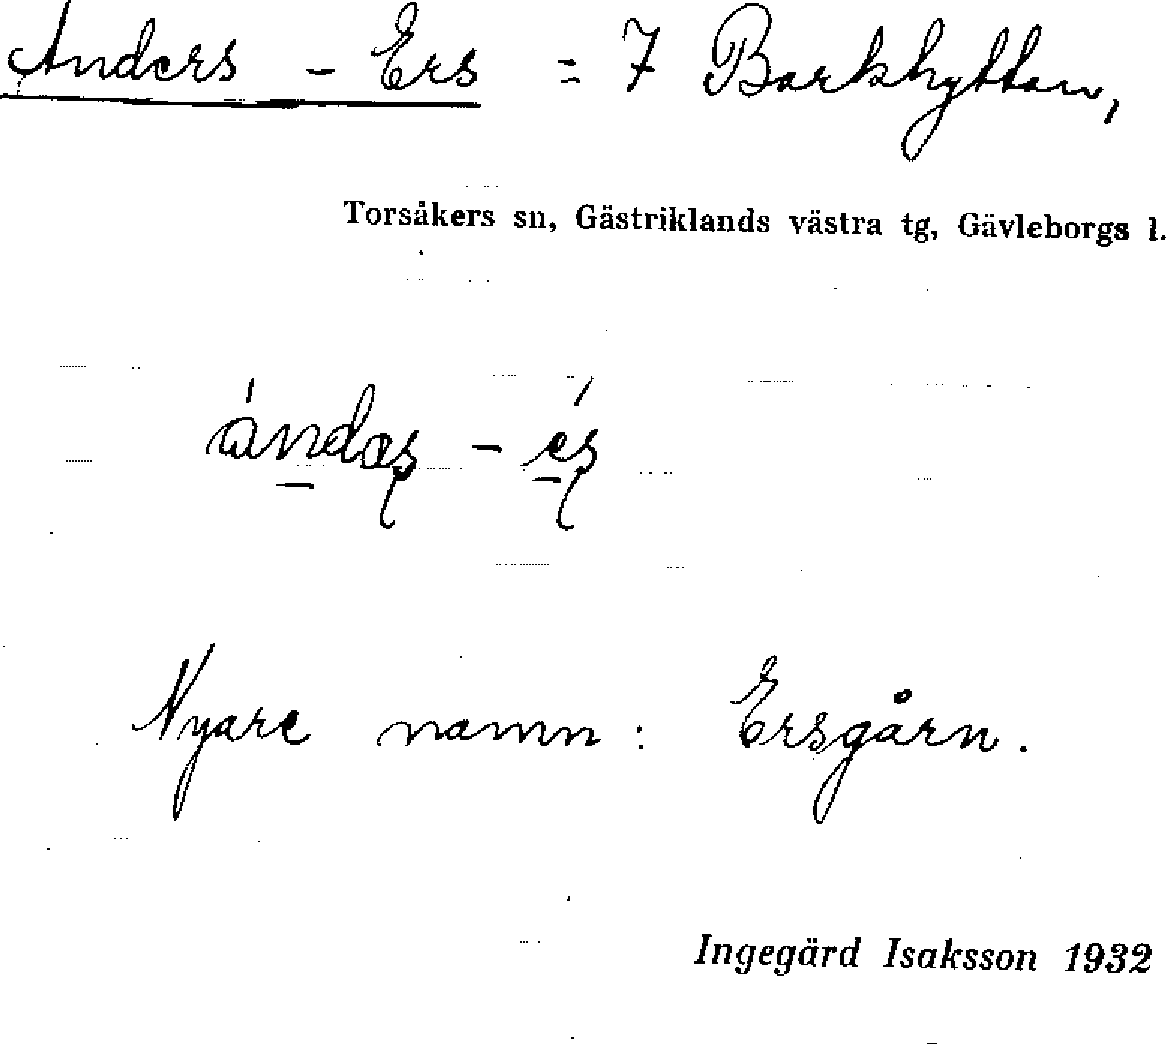 Anders - Ers = 7 Barkhyttan,
Torsåkers sn, Gästriklands västra tg, Gävleborgs l.
Nyare namn: Ersgårn.
Ingegärd Isaksson 1932